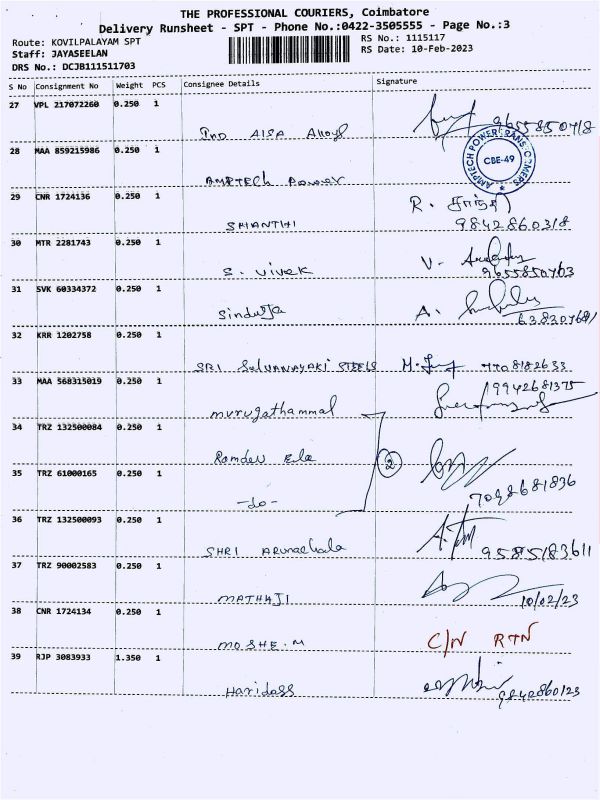 THE PROFESSIONAL COURIERS, Coimbatore
Delivery Runsheet - SPT - Phone No.:0422-3505555 - Page No.:3
Route: KOVILPALAYAM SPT
RS No.: 1115117
Staff: JAYASEELAN
RS Date: 10-Feb-2023
DRS No.: DCJB111511703
S No Consignment No Weight PCS Consignee Details Signature
27 VPL 217072260 0.250 1
IND AISA Alloys 9655850718
28 MAA 859215986 0.250 1
AMPTECH POWER TRANSFORMERS
CBE-49
AMPTECH POWER
29 CNR 1724136 0.250 1
SHANTHI R. சாந்தி
9842860318
30 MTR 2281743 0.250 1
S. VIVEK V.
9655850763
31 SVK 60334372 0.250 1
Sinduja A.
32 KRR 1202758 0.250 1
SRI Selvanayaki STEELS 7708182633
33 MAA 568315019 0.250 1
19942681375
murugathammal
34 TRZ 132500084 0.250 1
Ramdev Ele
2
35 TRZ 61000165 0.250 1
-do- 7098681836
36 TRZ 132500093 0.250 1
SHRI Arunachala 9585183611
37 TRZ 90002583 0.250 1
MATHAJI 10/02/23
38 CNR 1724134 0.250 1
MOSHE.M C/N RTN
39 RJP 3083933 1.350 1
Haridoss 9842860123